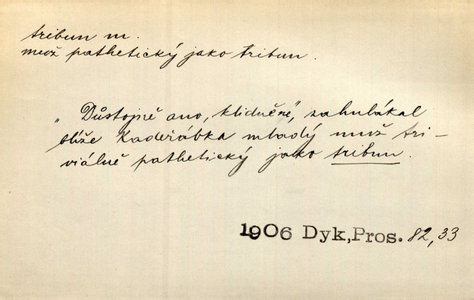 tribun m.
muž pathetický jako tribun.
„Důstojně ano, klidněně", zahulákal
blíže Kadeřábka mladý muž tri-
viálně pathetický jako tribun.
1906 Dyk, Pros. 82, 33